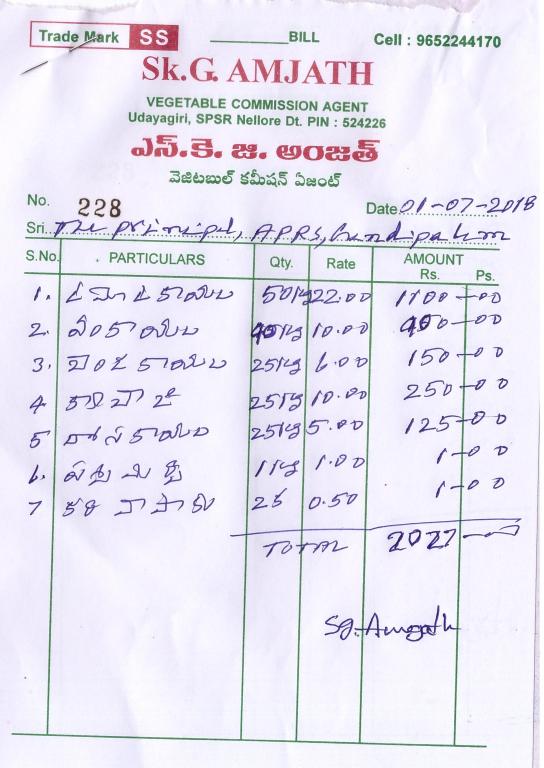 Trade Mark SS ________BILL Cell : 9652244170
Sk.G. AMJATH
VEGETABLE COMMISSION AGENT
Udayagiri, SPSR Nellore Dt. PIN : 524226
ఎస్.కె. జి. అంజత్
వెజిటబుల్ కమీషన్ ఏజంట్
No. 228 Date 01-07-2018
Sri. The principal, APRS,
S.No. PARTICULARS Qty. Rate AMOUNT Rs. Ps.
1. టమాటకాయలు 50kg 22.00 1100-00
2. వంకాయలు 40kg 10.00 400-00
3. 25kg 6.00 150-00
4 25kg 10.00 250-00
5 దోసకాయలు 25kg 5.00 125-00
6. 1kg 1.00 1-00
7 2 0.50 1-00
TOTAL 2027-
Sg. Amjath